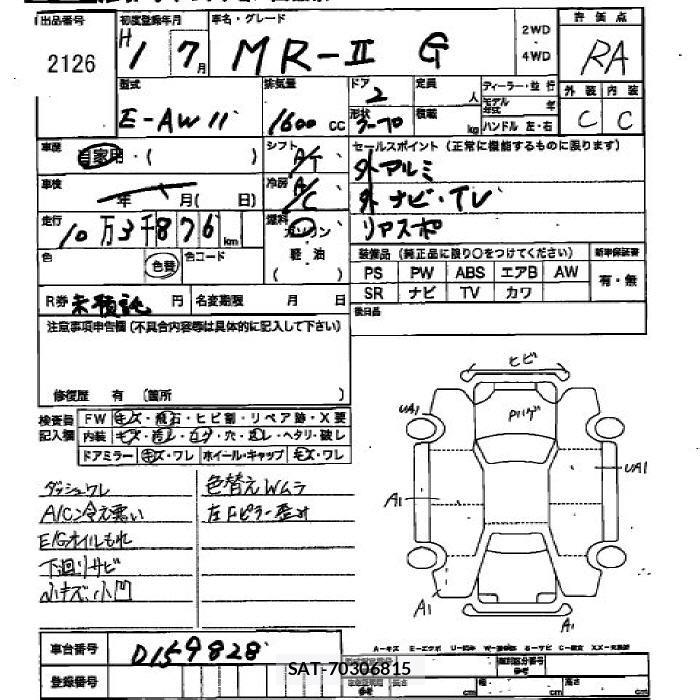 出品番号 初度登録年月 車名・グレード 2WD 評価点
2126 H1 7月 MR-II G ・ 4WD RA
型式 排気量 ドア 定員 ディーラー・並行 外装 内装
E-AW11 1600cc 2 人 モデル年式 年 C C
形状 積載 kg ハンドル 左・右
車歴 自家用・( ) シフト A/T セールスポイント(正常に機能するものに限ります)
車検 年 月( 日) 冷房 A/C 外アルミ
外ナビ・TV
走行 10万3千876km 燃料 ガソリン・軽油 ( ) リアスポ
色 色替 色コード 装備品(純正品に限り○をつけてください) 新車保証書
PS PW ABS エアB AW 有・無
R券 未預託 円 名変期限 月 日 SR ナビ TV カワ
注意事項申告欄(不具合内容等は具体的に記入して下さい) 後日品
修復歴 有 (箇所 )
検査員記入欄 FW キズ・飛石・ヒビ割・リペア跡・X要
内装 キズ・汚レ・コゲ・穴・スレ・ヘタリ・破レ
ドアミラー キズ・ワレ ホイール・キャップ キズ・ワレ
ヒビ
UA1 Pハゲ
UA1
A1
A1 A1
ダッシュワレ 色替えWムラ
A/C冷え悪い 左Fピラー歪み
E/Gオイルもれ
下廻りサビ
小キズ、小凹
車台番号 D159828
登録番号 SAT-70306815